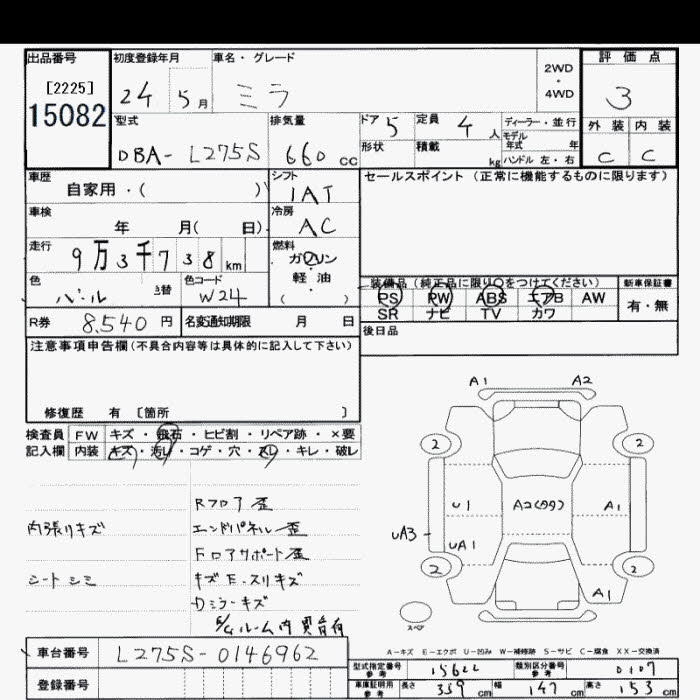 出品番号 初度登録年月 車名・グレード 2WD・4WD 評価点
[2225]
15082
24 5月 ミラ 3
型式 排気量 ドア 5 定員 4人 ディーラー・並行 外装 内装
モデル年式 年
DBA- L275S 660 cc 形状 積載 kg ハンドル 左・右 C C
車歴 シフト セールスポイント (正常に機能するものに限ります)
自家用・( ) IAT
車検 冷房
年 月( 日) AC
走行 燃料
9万3千738km ガソリン・軽油
色 色コード ( ) 装備品(純正品に限り○をつけてください) 新車保証書
パール 替 W24 PS PW ABS エアB AW 有・無
R券 8,540 円 名変通知期限 月 日 SR ナビ TV カワ
後日品
注意事項申告欄(不具合内容等は具体的に記入して下さい)
修復歴 有 〔箇所 〕
A1 A2
検査員 FW キズ・飛石・ヒビ割・リペア跡・×要
記入欄 内装 キズ・汚レ・コゲ・穴・スレ・キレ・破レ
2 2
U1 A2 A1
UA3 UA1
2 2
A1
スペア
Rフロア歪
内張りキズ エンドパネル歪
Fロアサポート歪
シートシミ キズE.スリキズ
Dミラーキズ
ルーム内
A-キズ E-エクボ U-凹み W-補修跡 S-サビ C-腐食 XX-交換済
車台番号 L275S-0146962
型式指定番号 参考 15622 類別区分番号 参考 0107
登録番号
車庫証明用 参考 長さ 339 cm 幅 147 cm 高さ 153 cm